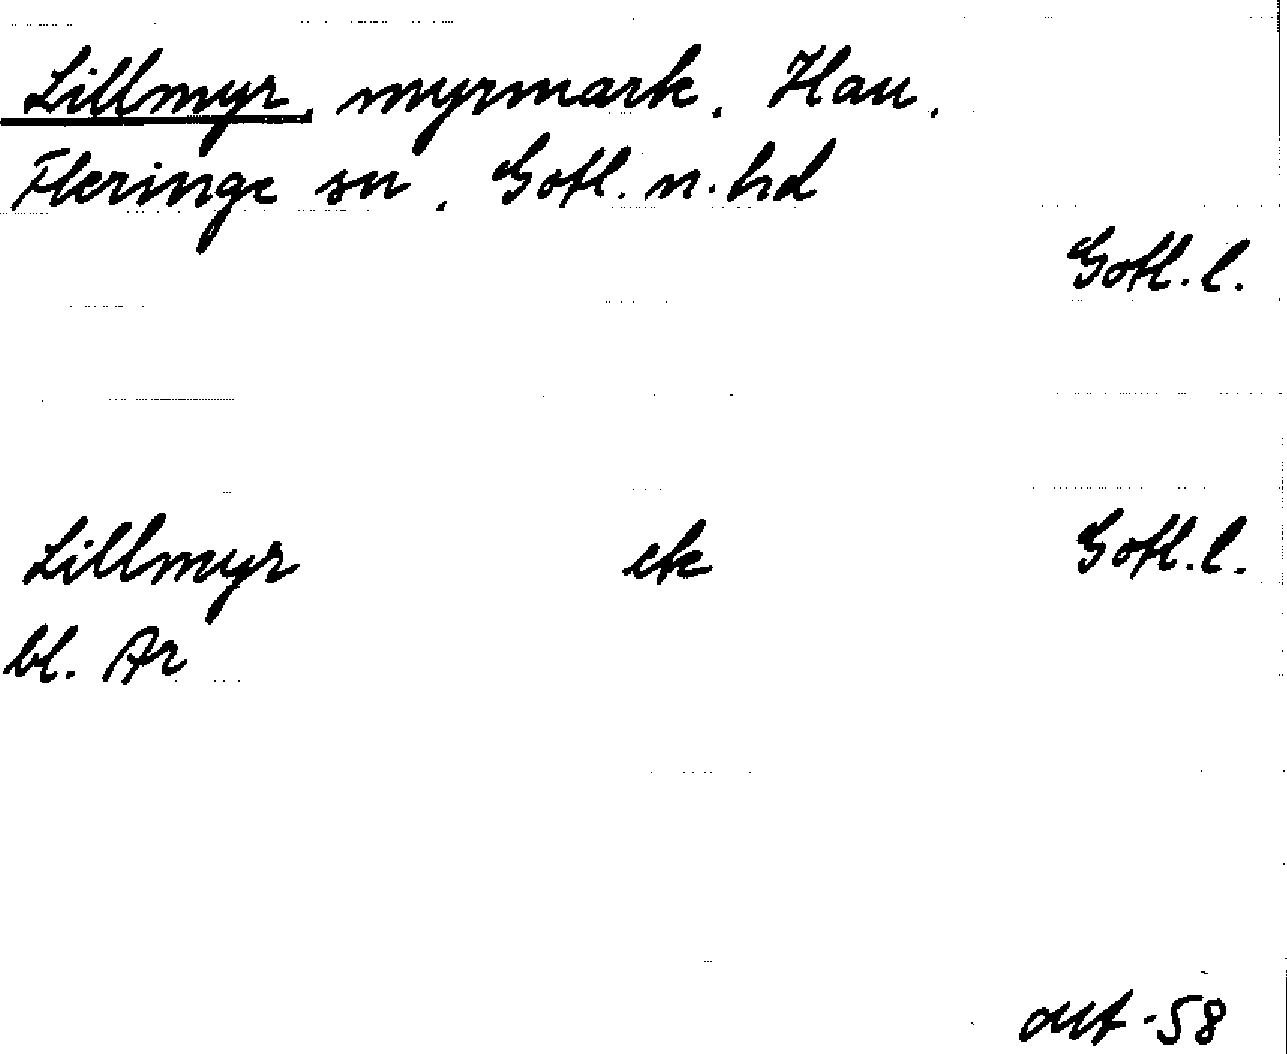 Lillmyr, myrmark, Hau,
Fleringe sn, Gotl. n. hd
Gotl. l.
Lillmyr ek Gotl. l.
bl. Ar
okt -58